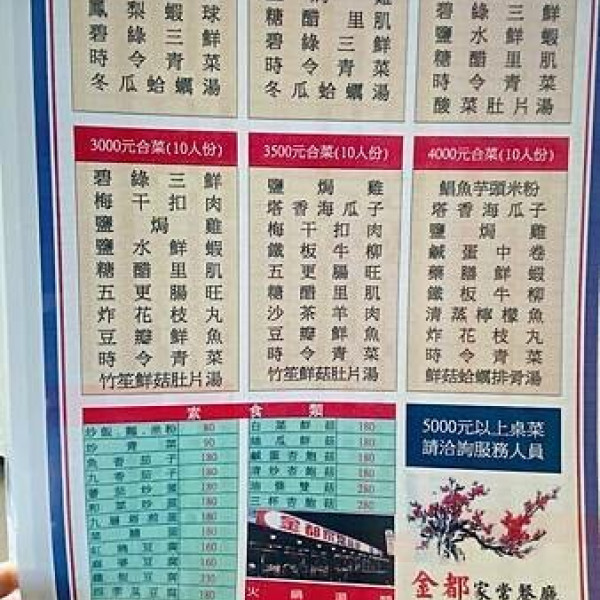 鳳梨蝦球
碧綠三鮮
時令青菜
冬瓜蛤蠣湯
糖醋里肌
碧綠三鮮
時令青菜
冬瓜蛤蠣湯
碧綠三鮮
鹽水鮮蝦
糖醋里肌
時令青菜
酸菜肚片湯
3000元合菜(10人份)
碧綠三鮮
梅干扣肉
鹽焗雞
鹽水鮮蝦
糖醋里肌
五更腸旺
炸花枝丸
豆瓣鮮魚
時令青菜
竹笙鮮菇肚片湯
3500元合菜(10人份)
鹽焗雞
塔香海瓜子
梅干扣肉
鐵板牛柳
五更腸旺
糖醋里肌
沙茶羊肉
豆瓣鮮魚
時令青菜
竹笙鮮菇肚片湯
4000元合菜(10人份)
鯧魚芋頭米粉
塔香海瓜子
鹽焗雞
鹹蛋中卷
藥膳鮮蝦
鐵板牛柳
清蒸檸檬魚
炸花枝丸
時令青菜
鮮菇蛤蠣排骨湯
素食類
炒飯.麵.米粉 80
炒青菜 90
魚香茄子 180
九香茄子 180
番茄炒蛋 180
和菜炒蛋 180
九層塔煎蛋 180
菜脯蛋 180
紅燒豆腐 160
麻婆豆腐 160
鐵板豆腐 230
四季菜豆腐 180
白菜鮮菇 180
絲瓜鮮菇 180
鹹蛋杏鮑菇 280
清炒杏鮑菇
油條雙菇 280
三杯杏鮑菇 280
火鍋湯類
5000元以上桌菜
請洽詢服務人員
金都家常餐廳